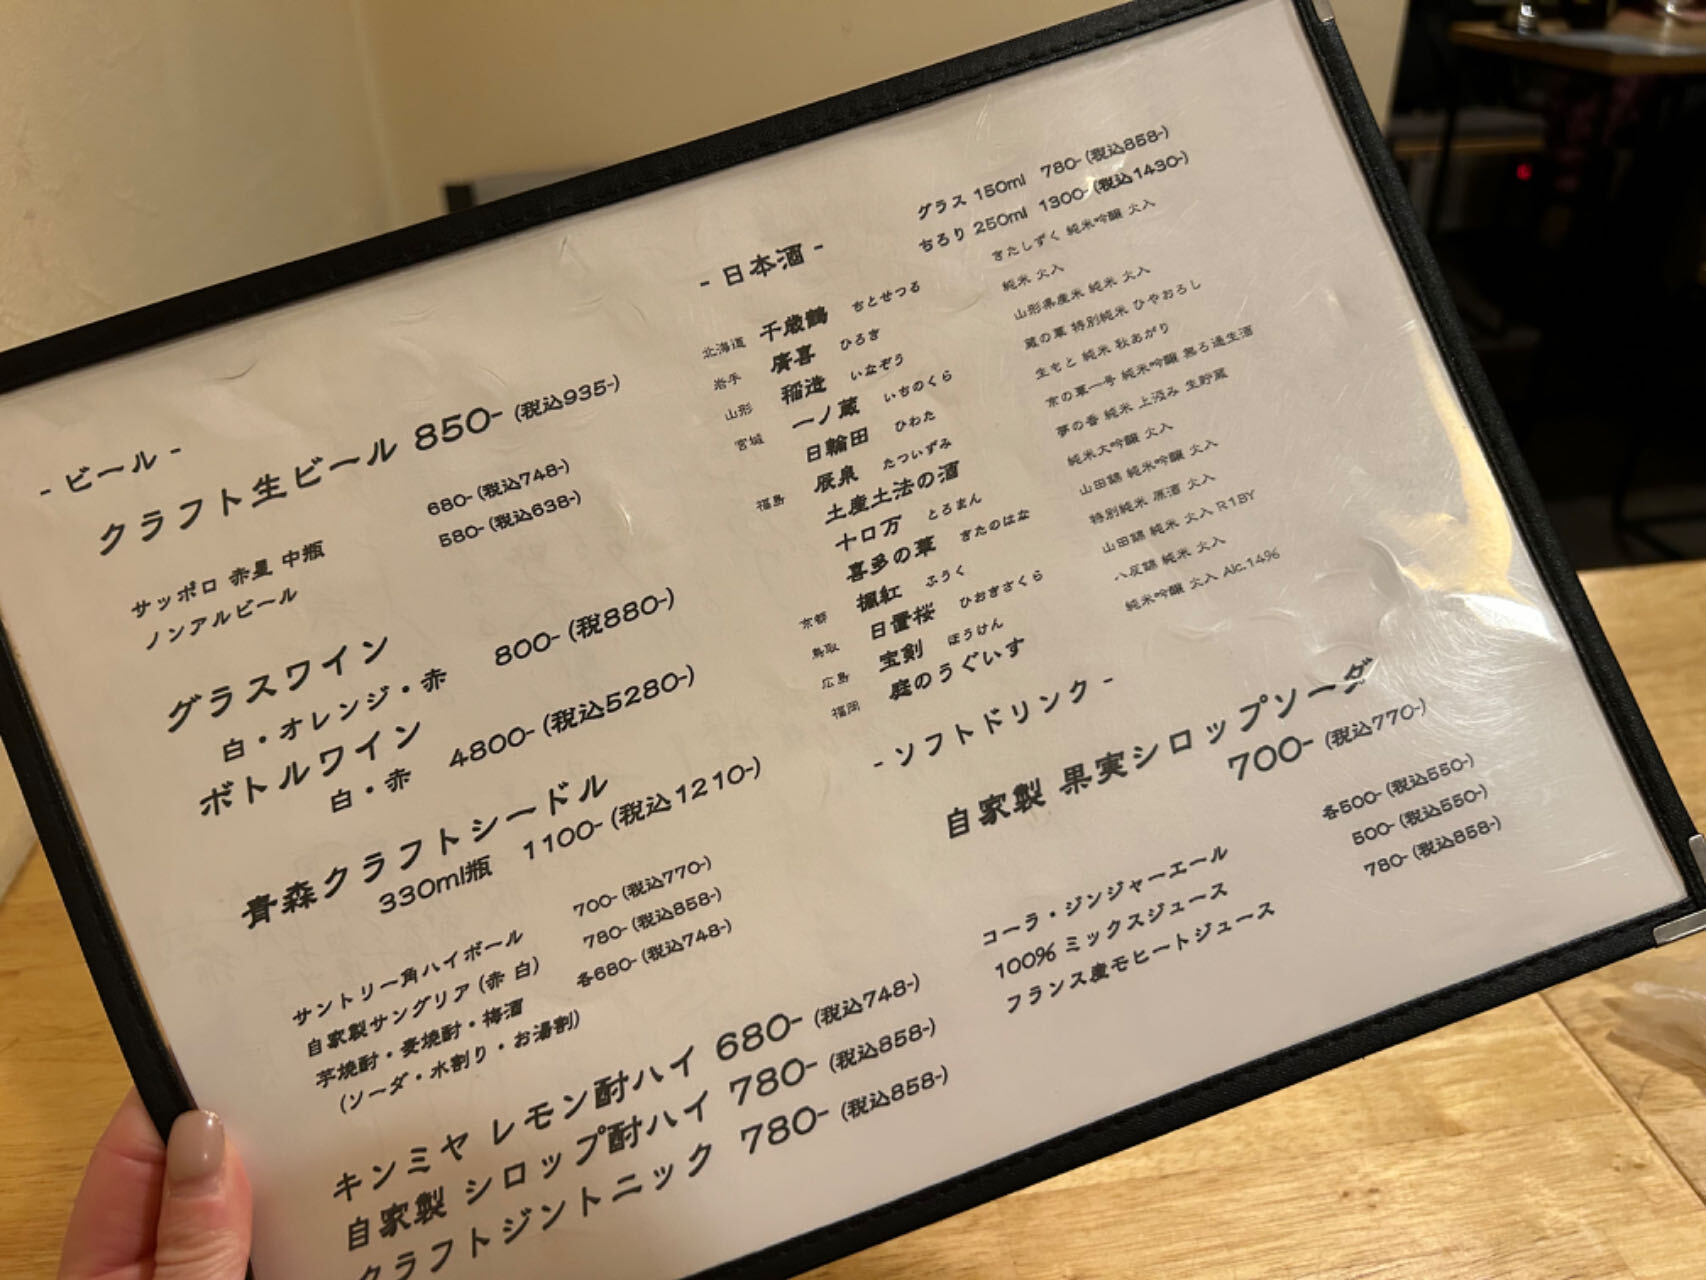 - ビール -
クラフト生ビール 850- (税込935-)
サッポロ 赤星 中瓶 680- (税込748-)
ノンアルビール 580- (税込638-)
グラスワイン
白・オレンジ・赤 800- (税880-)
ボトルワイン
白・赤 4800- (税込5280-)
青森クラフトシードル
330ml瓶 1100- (税込1210-)
サントリー角ハイボール 700- (税込770-)
自家製サングリア (赤 白) 780- (税込858-)
芋焼酎・麦焼酎・梅酒 各680- (税込748-)
(ソーダ・水割り・お湯割)
キンミヤ レモン酎ハイ 680- (税込748-)
自家製 シロップ酎ハイ 780- (税込858-)
クラフトジントニック 780- (税込858-)
- 日本酒 -
グラス 150ml 780- (税込858-)
ちろり 250ml 1300- (税込1430-)
北海道 千歳鶴 ちとせつる きたしずく 純米吟醸 火入
岩手 廣喜 ひろき 純米 火入
山形 稲造 いなぞう 山形県産米 純米 火入
宮城 一ノ蔵 いちのくら 蔵の華 特別純米 ひやおろし
日輪田 ひわた 生もと 純米 秋あがり
福島 辰泉 たついずみ 京の華一号 純米吟醸 無ろ過生酒
土産土法の酒 夢の香 純米 上汲み 生貯蔵
十ロ万 とろまん 純米大吟醸 火入
喜多の華 きたのはな 山田錦 純米吟醸 火入
京都 楓紅 ふうく 特別純米 原酒 火入
鳥取 日置桜 ひおきざくら 山田錦 純米 火入 R1BY
広島 宝剣 ほうけん 八反錦 純米 火入
福岡 庭のうぐいす 純米吟醸 火入 Alc.14%
- ソフトドリンク -
自家製 果実シロップソーダ
700- (税込770-)
コーラ・ジンジャーエール 各500- (税込550-)
100% ミックスジュース 500- (税込550-)
フランス産モヒートジュース 780- (税込858-)